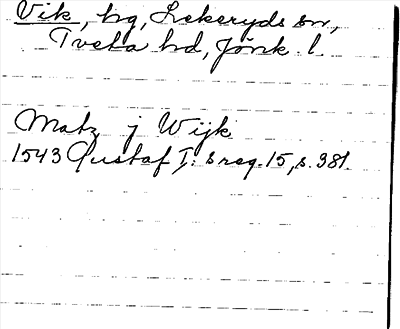 Vik, hg, Lekeryds sn,
Tveta hd, Jönk. l.
Matz j Wijk
1543 Gustaf I:s reg. 15, s. 381.